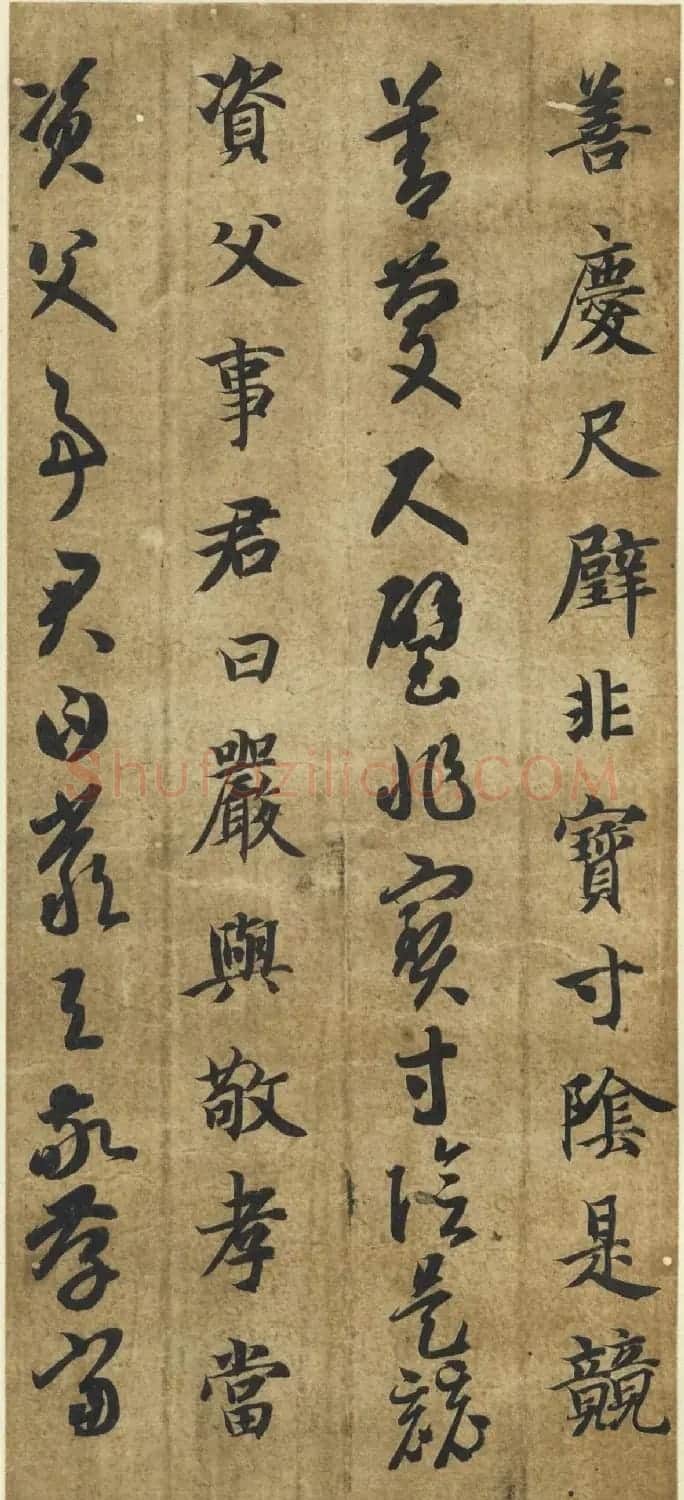 善慶尺璧非寶寸陰是競
善慶尺璧非寶寸陰是競
資父事君曰嚴與敬孝當
資父事君曰嚴與敬孝當
Shufaziliao.COM